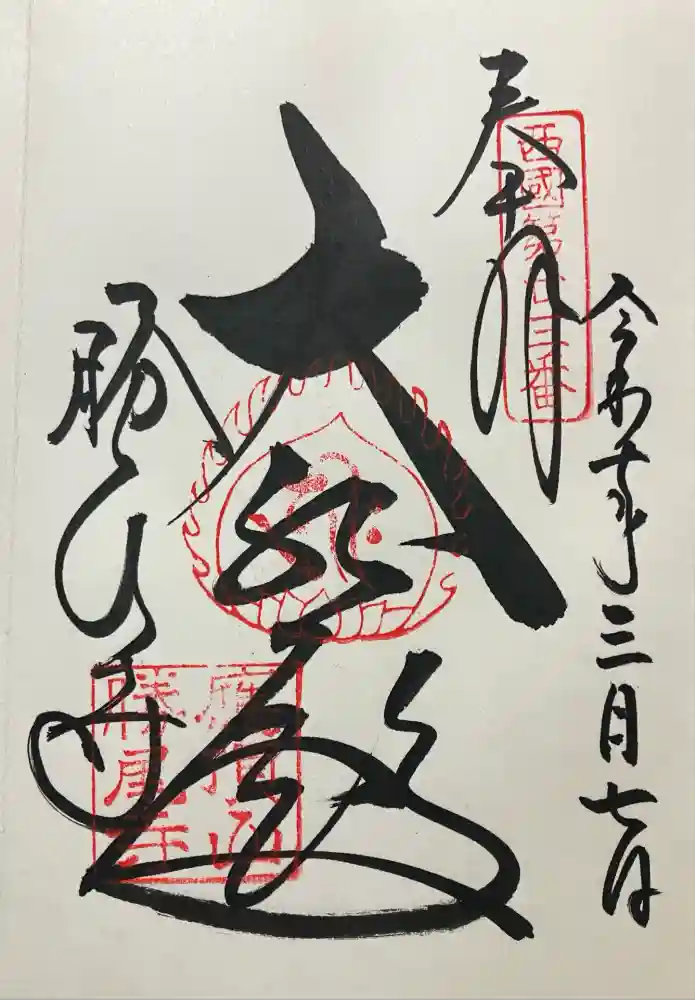 令和七年三月七日
奉拝
西國第廿三番
大悲殿
勝尾寺
應頂山
勝尾寺